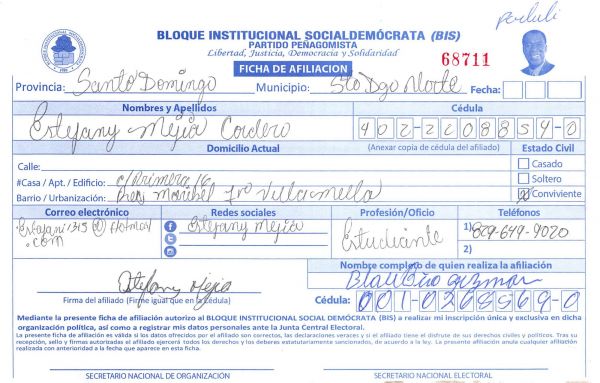 perduli
BLOQUE INSTITUCIONAL SOCIALDEMÓCRATA (BIS)
PARTIDO PEÑAGOMISTA
Libertad, Justicia, Democracia y Solidaridad
68711
FICHA DE AFILIACION
Provincia: Santo Domingo Municipio: Sto Dgo Norte Fecha:
Nombres y Apellidos Cédula
Estefany Mejia Cordero 402-2208859-0
Domicilio Actual (Anexar copia de cédula del afiliado) Estado Civil
Calle: Casado
#Casa / Apt. / Edificio: c/Primera 16 Soltero
Barrio / Urbanización: Maribel Villa mella Conviviente
Correo electrónico Redes sociales Profesión/Oficio Teléfonos
Estefani1315@Hotmail Estefany Mejia Estudiante 1) 829-649-9020
.com 2)
Nombre completo de quien realiza la afiliación
Estefany Mejia guzman
Firma del afiliado (Firme igual que en la Cédula) Cédula: 001-0268569-0
Mediante la presente ficha de afiliación autorizo al BLOQUE INSTITUCIONAL SOCIAL DEMÓCRATA (BIS) a realizar mi inscripción única y exclusiva en dicha
organización política, así como a registrar mis datos personales ante la Junta Central Electoral.
La presente ficha de afiliación es válida si los datos ofrecidos por el afiliado son correctos, las declaraciones veraces y si el afiliado tiene el disfrute de sus derechos civiles y políticos. Tras su
recepción, sello y firmas autorizadas el afiliado ejercerá todos los derechos y los deberes estatutariamente sancionados, de acuerdo a la ley. La presente afiliación anula cualquier afiliación
realizada con anterioridad a la fecha que aparece en esta ficha.
SECRETARIO NACIONAL DE ORGANIZACIÓN SECRETARIO NACIONAL ELECTORAL